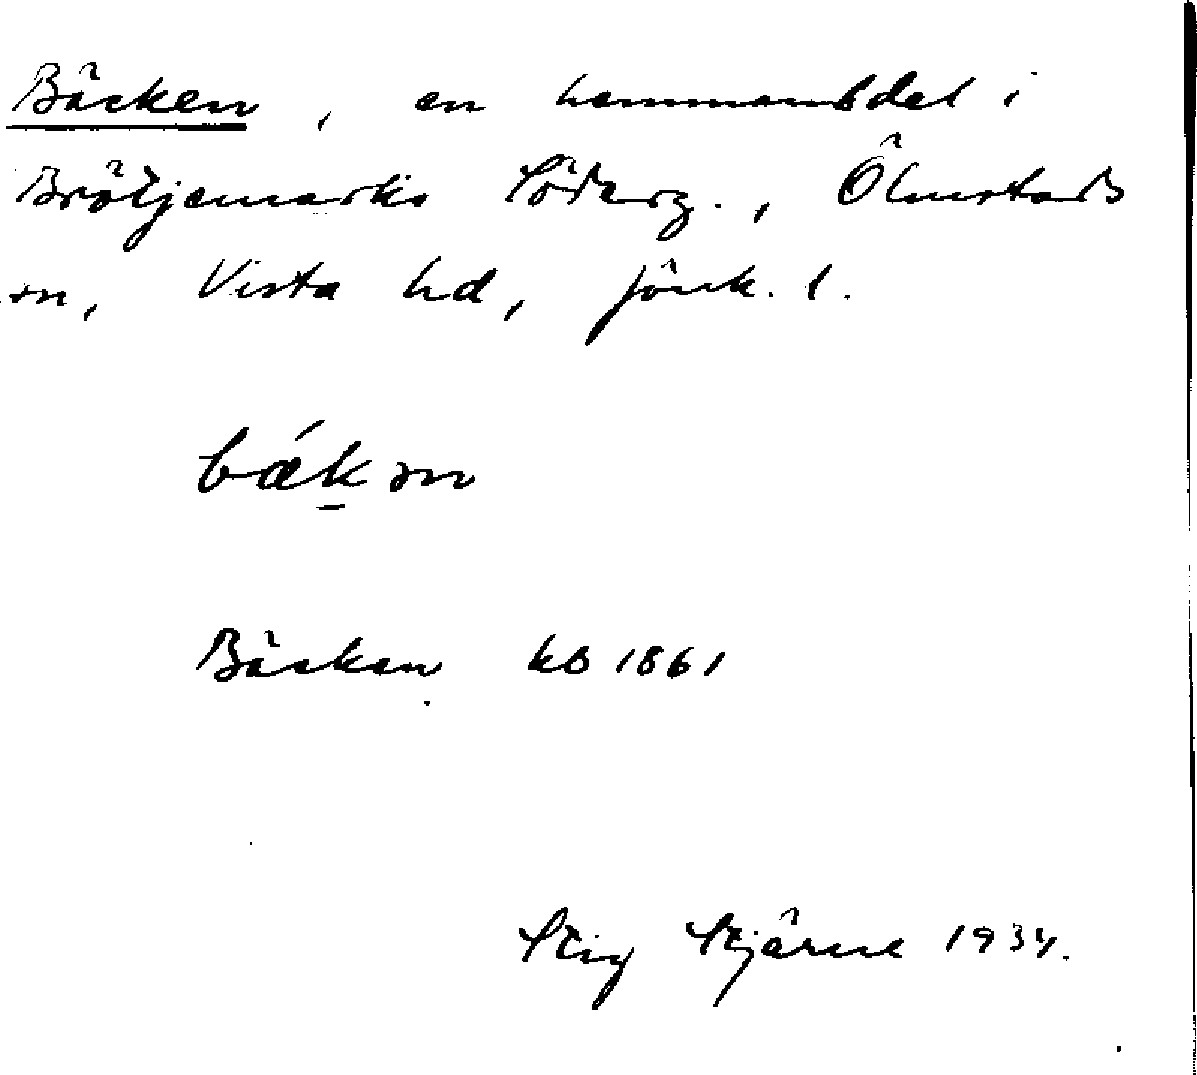 Bäcken, en hemmansdel i
Brötjemarks Söderg., Ölmstads
sn, Vista hd, Jönk. l.
bǽk̠ən
Bäcken kb 1861
Stig Stjärne 1934.